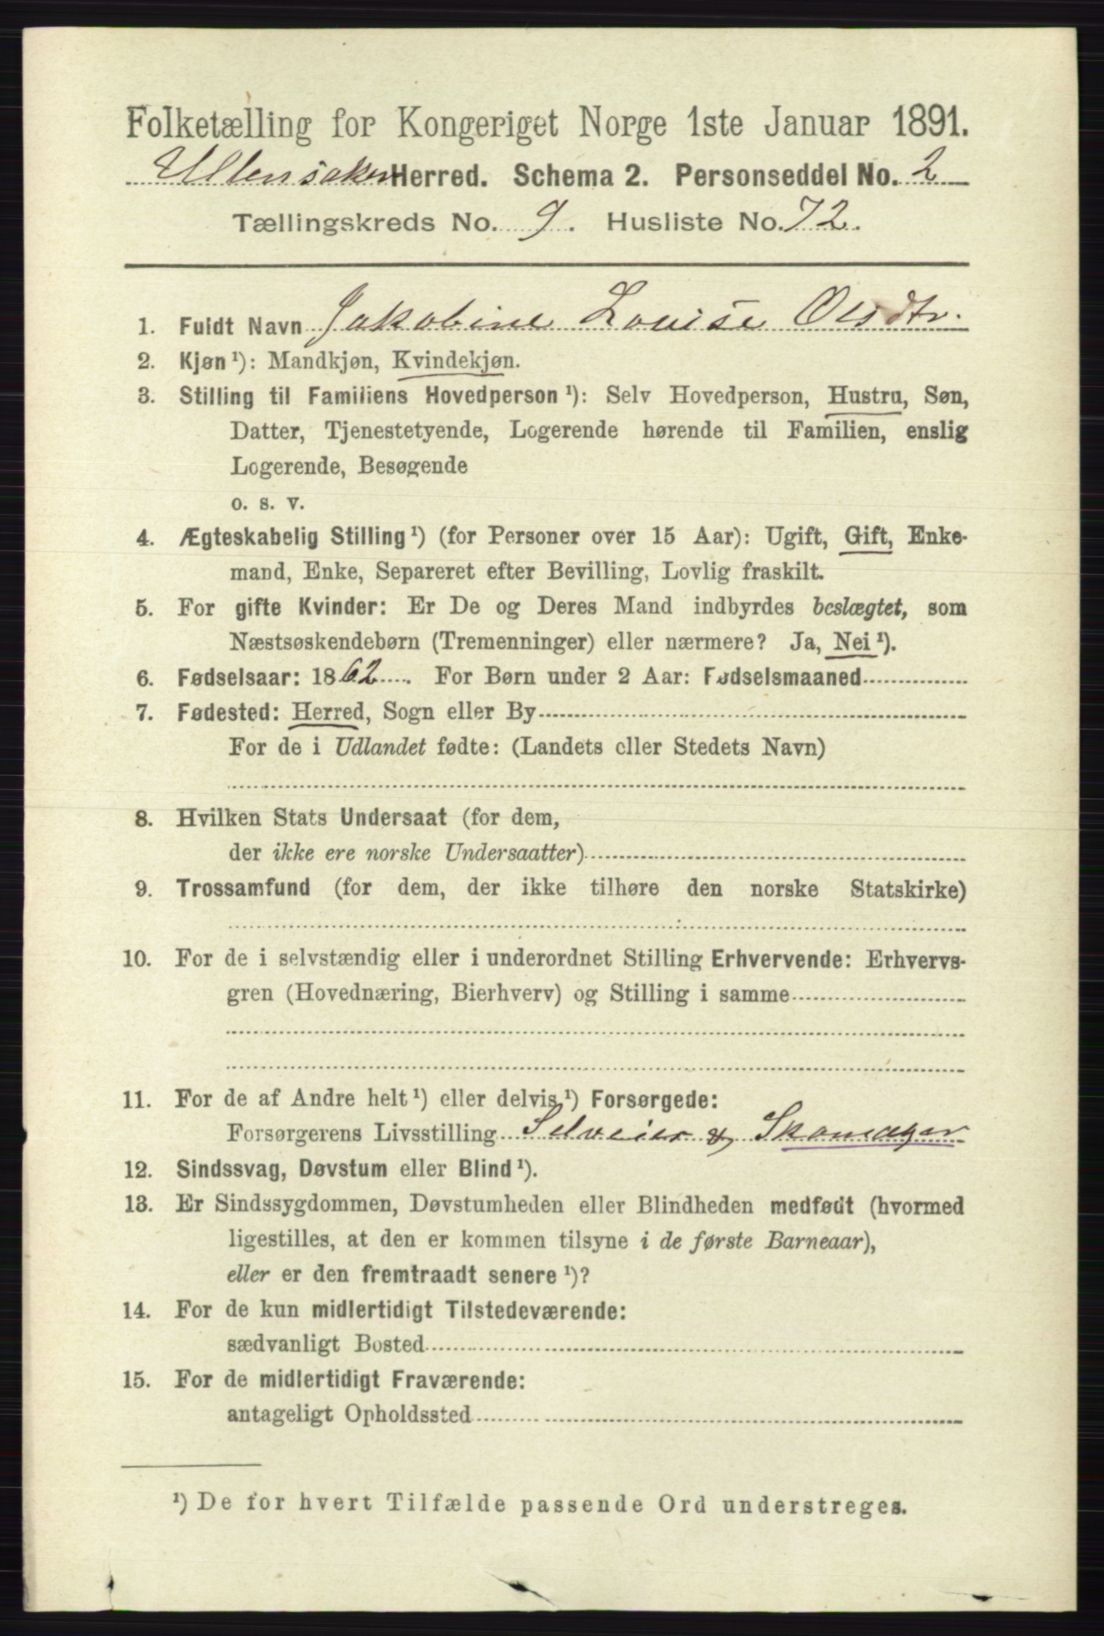 Folketælling for Kongeriget Norge 1ste Januar 1891.
Ullensaker Herred. Schema 2. Personseddel No. 2
Tællingskreds No. 9. Husliste No. 72.
1. Fuldt Navn Jakobine Louise Olsdtr.
2. Kjøn ¹): Mandkjøn, Kvindekjøn.
3. Stilling til Familiens Hovedperson ¹): Selv Hovedperson, Hustru, Søn,
Datter, Tjenestetyende, Logerende hørende til Familien, enslig
Logerende, Besøgende
o. s. v.
4. Ægteskabelig Stilling ¹) (for Personer over 15 Aar): Ugift, Gift, Enke-
mand, Enke, Separeret efter Bevilling, Lovlig fraskilt.
5. For gifte Kvinder: Er De og Deres Mand indbyrdes beslægtet, som
Næstsøskendebørn (Tremenninger) eller nærmere? Ja, Nei ¹).
6. Fødselsaar: 1862. For Børn under 2 Aar: Fødselsmaaned
7. Fødested: Herred, Sogn eller By
For de i Udlandet fødte: (Landets eller Stedets Navn)
8. Hvilken Stats Undersaat (for dem,
der ikke ere norske Undersaatter)
9. Trossamfund (for dem, der ikke tilhøre den norske Statskirke)
10. For de i selvstændig eller i underordnet Stilling Erhvervende: Erhvervs-
gren (Hovednæring, Bierhverv) og Stilling i samme
11. For de af Andre helt ¹) eller delvis ¹) Forsørgede:
Forsørgerens Livsstilling Selveier & Skomager
12. Sindssvag, Døvstum eller Blind ¹).
13. Er Sindssygdommen, Døvstumheden eller Blindheden medfødt (hvormed
ligestilles, at den er kommen tilsyne i de første Barneaar),
eller er den fremtraadt senere ¹)?
14. For de kun midlertidigt Tilstedeværende:
sædvanligt Bosted
15. For de midlertidigt Fraværende:
antageligt Opholdssted
¹) De for hvert Tilfælde passende Ord understreges.